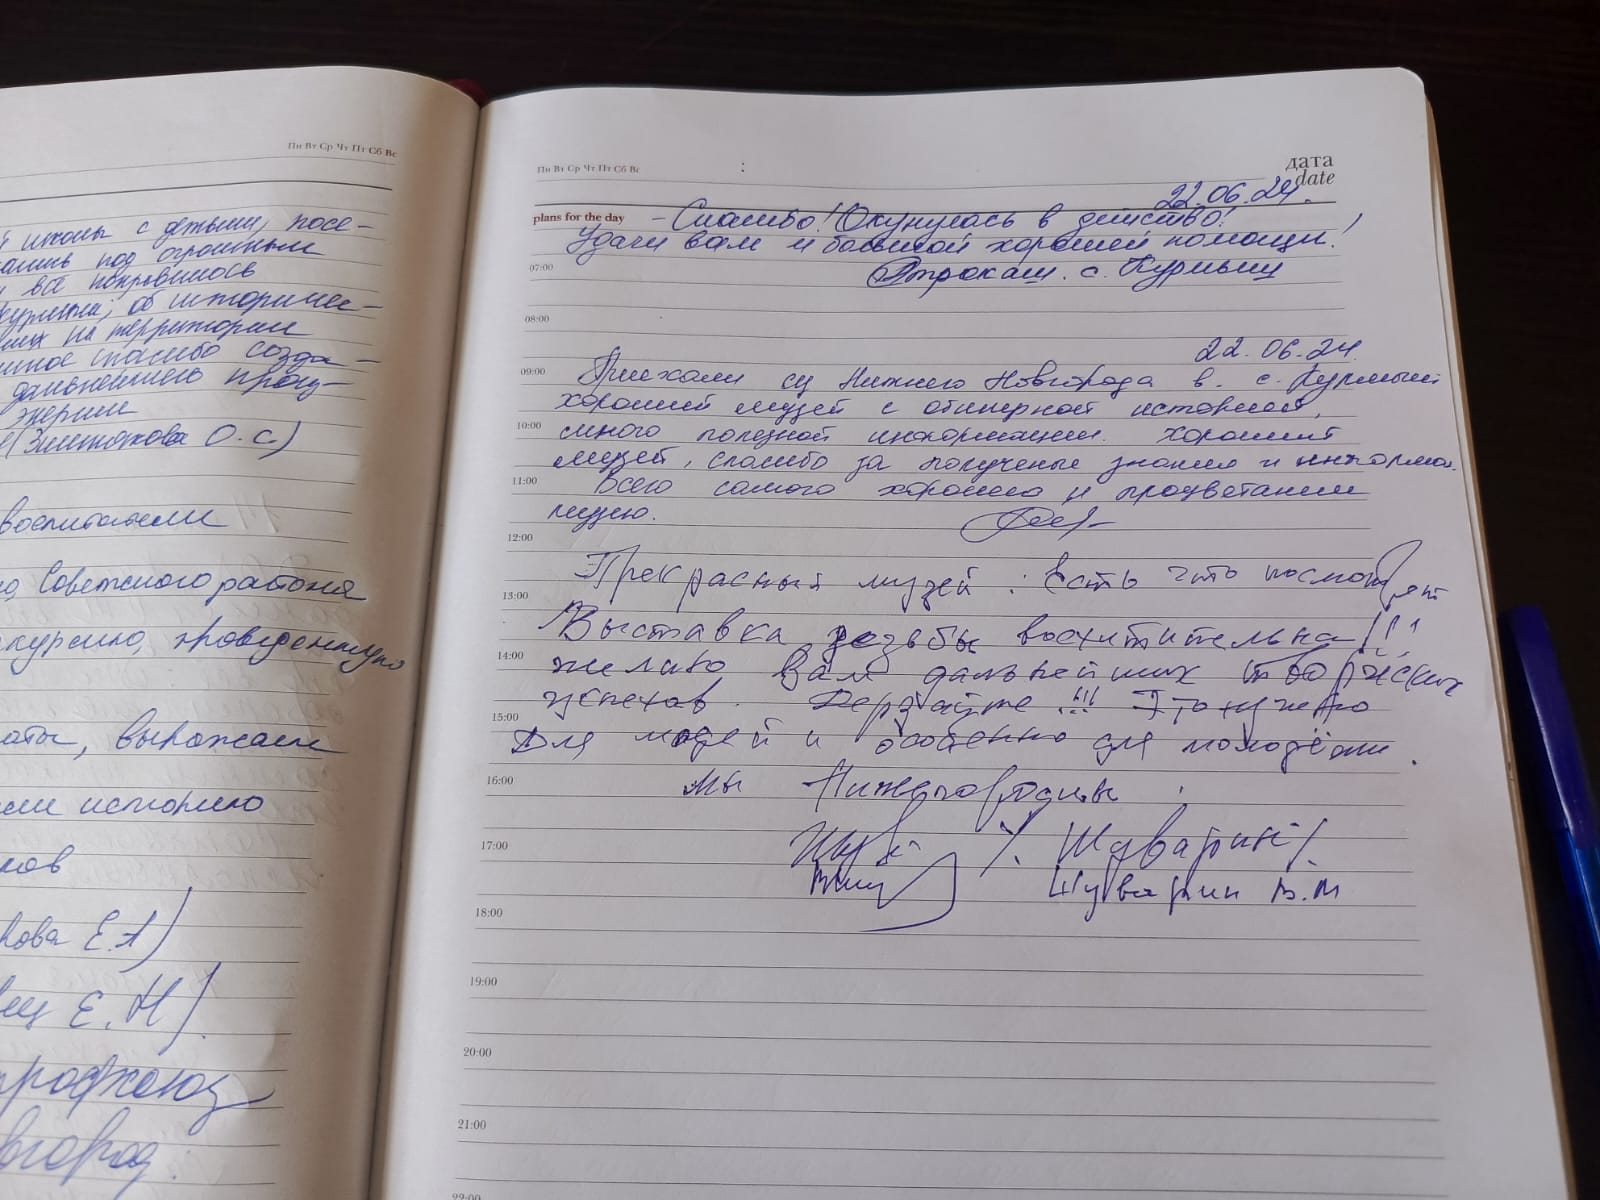 Пн Вт Ср Чт Пт Сб Вс
школы с детьми, посе-
под огромным
все покрывалось
об историчес-
на территории
спасибо созда-
дальнейшего процв-
энергии
О.С.)
воспитатели
Советского района
проведенную
выражаем
историю
ков
кова Е.А)
Е.Н)
профсоюз
Пн Вт Ср Чт Пт Сб Вс
дата
date
22.06.24.
plans for the day
- Спасибо! Окунулась в действо!
Удачи вам и большой хорошей помощи!
с. Курмыш
07:00
08:00
22.06.24.
09:00
Приехали из Нижнего Новгорода в с. Курмыш
хороший музей с обширной историей,
10:00
много полезной информации. хороший
музей, спасибо за полученые знания и информа.
11:00
Всего самого хорошего и процветания
музею.
12:00
Прекрасный музей: Есть что посмотреть
13:00
Выставка резьбы восхитительна!!!
14:00
желаю Вам дальнейших творческих
успехов. Дерзайте!!! Это нужно
15:00
Для людей и особенно для молодёжи.
16:00
Мы Нижегородцы
17:00
Шуварин В.М
18:00
19:00
20:00
21:00
22:00